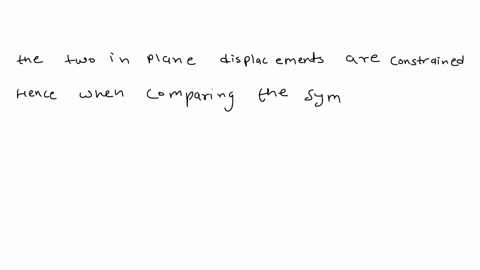 the two in plane displacements are constrained
Hence when comparing the sym